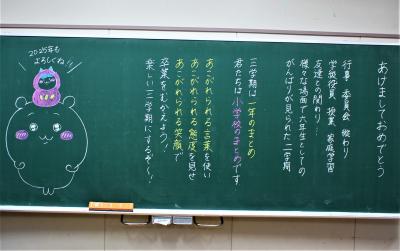 あけましておめでとう
行事 委員会 縦わり
学級役員 授業 家庭学習
友達との関わり…
様々な場面で六年生としての
がんばりが見られた二学期
三学期は一年のまとめ
君たちは小学校のまとめです
あこがれられる言葉を使い
あこがれられる態度を見せ
あこがれられる笑顔で
卒業をむかえよう！
楽しい三学期にするぞ〜！
2025年も
よろしくね!!